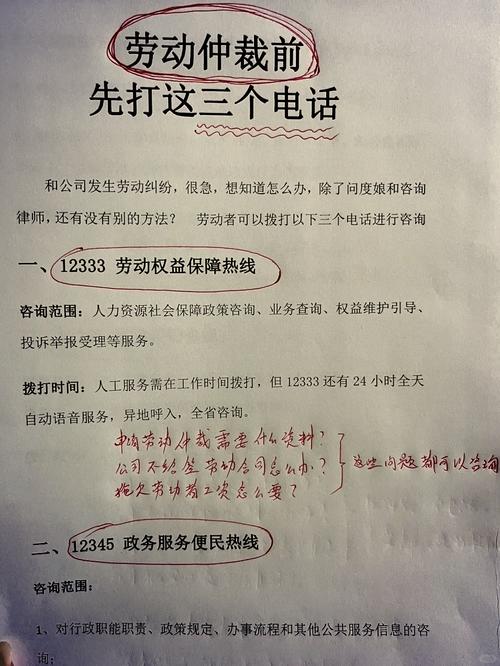 劳动仲裁前
先打这三个电话
和公司发生劳动纠纷，很急，想知道怎么办，除了问度娘和咨询
律师，还有没有别的方法？ 劳动者可以拨打以下三个电话进行咨询
一、12333 劳动权益保障热线
咨询范围：人力资源社会保障政策咨询、业务查询、权益维护引导、
投诉举报受理等服务。
拨打时间：人工服务需在工作时间拨打，但 12333 还有 24 小时全天
自动语音服务，异地呼入，全省咨询。
申请劳动仲裁需要什么资料？
公司不给签劳动合同怎么办？
拖欠劳动者工资怎么要？
这些问题都可以咨询
二、12345 政务服务便民热线
咨询范围：
1、对行政职能职责、政策规定、办事流程和其他公共服务信息的咨
询；